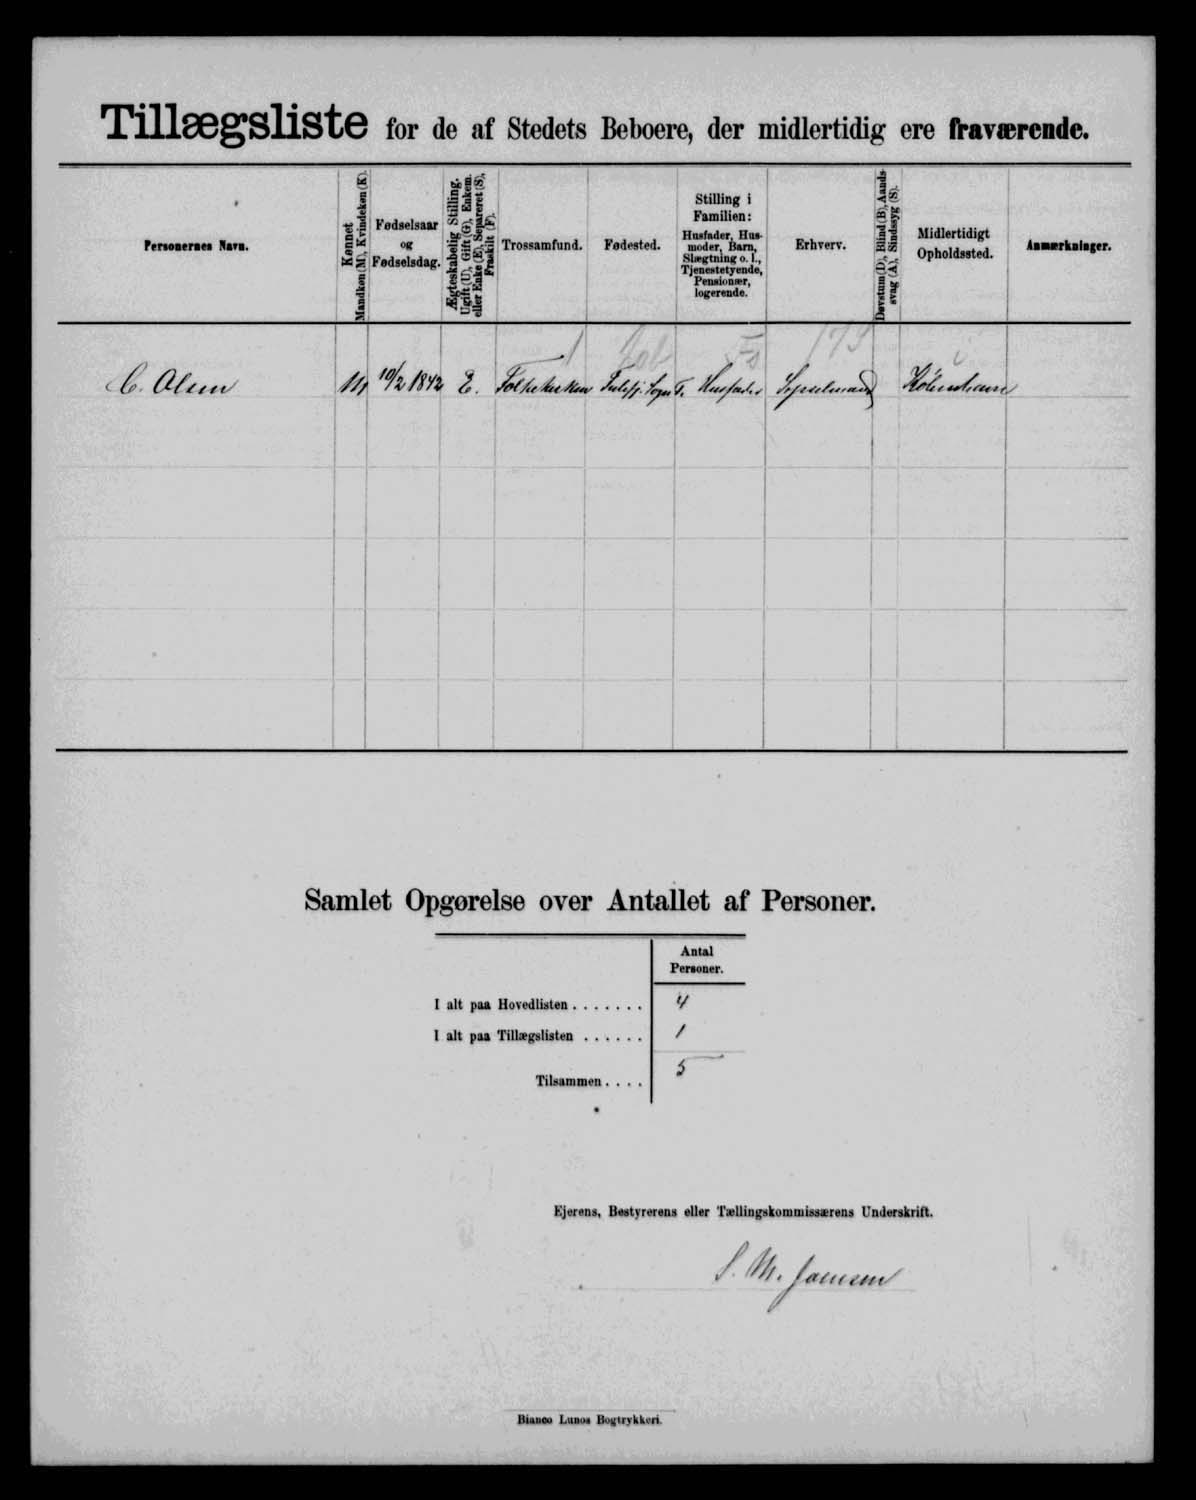 Tillægsliste for de af Stedets Beboere, der midlertidig ere fraværende.
Personernes Navn.
Kønnet
Mandkøn (M), Kvindekøn (K).
Fødselsaar
og
Fødselsdag.
Ægteskabelig Stilling.
Ugift (U), Gift (G), Enkem.
eller Enke (E), Separeret (S),
Fraskilt (F).
Trossamfund.
Fødested.
Stilling i
Familien:
Husfader, Hus-
moder, Barn,
Slægtning o. l.,
Tjenestetyende,
Pensionær,
logerende.
Erhverv.
Døvstum (D), Blind (B), Aands-
svag (A), Sindssyg (S).
Midlertidigt
Opholdssted.
Anmærkninger.
C. Olsen M 10/2 1842 E. Folkekirken Sogn Husfader
Samlet Opgørelse over Antallet af Personer.
Antal
Personer.
I alt paa Hovedlisten . . . . . . . 4
I alt paa Tillægslisten . . . . . . 1
Tilsammen . . . . 5
Ejerens, Bestyrerens eller Tællingskommissærens Underskrift.
S. M.
Bianco Lunos Bogtrykkeri.